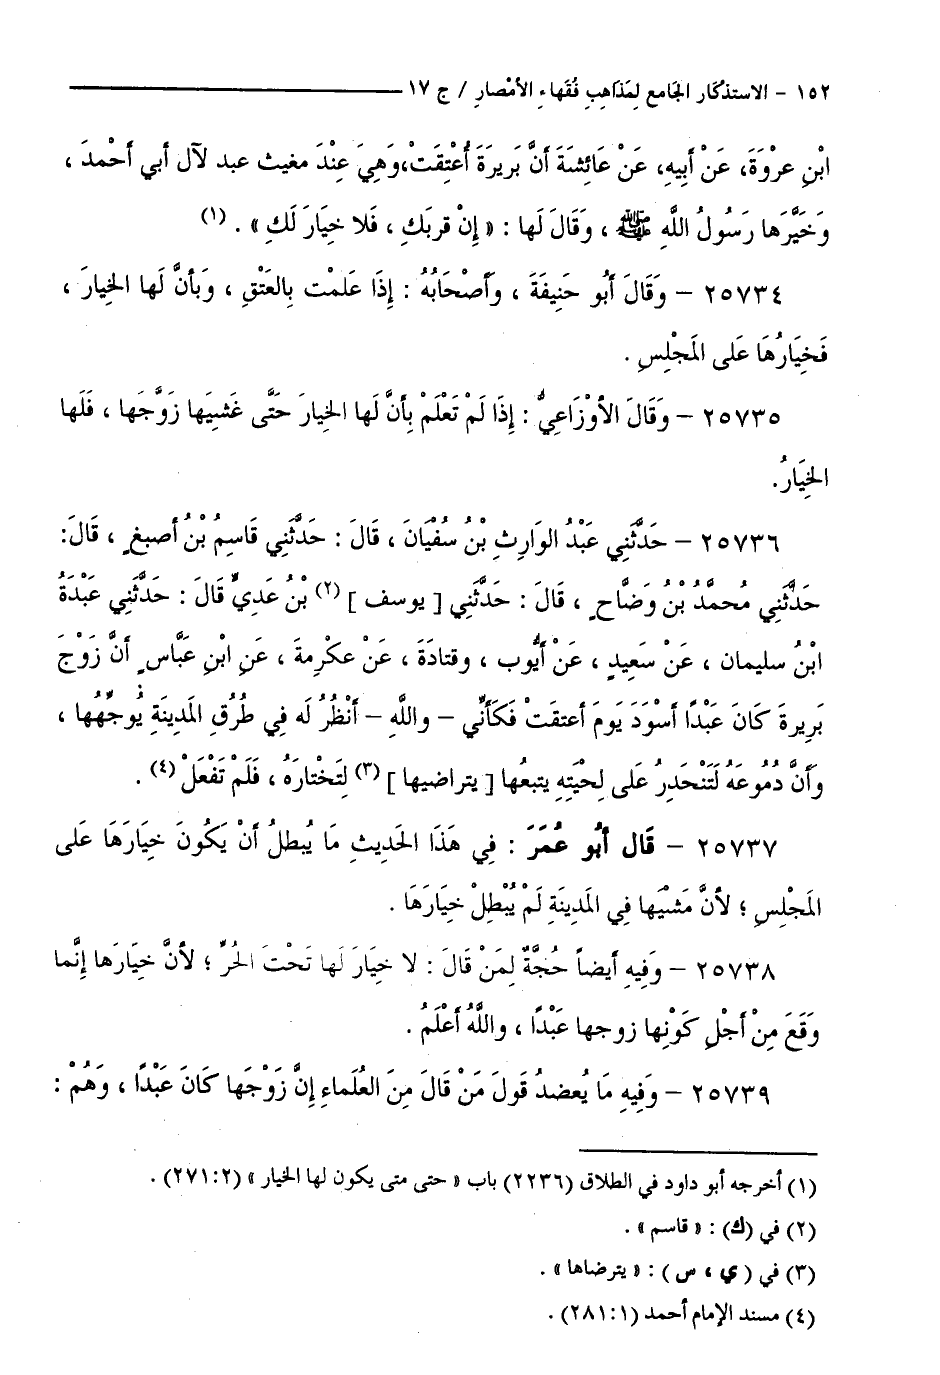 ١٥٢ - الاستذْكَار الجَامع لِمَذَاهِبِ فُقَهاءِ الأمْصارِ / ج ١٧
ابْنِ عرْوَةَ، عَنْ أَبِيهِ، عَنْ عَائِشَةَ أَنَّ بَرِيرَةَ أُعْتِقَتْ،وَهِيَ عِنْدَ مغيث عبد لآل أبي أحْمدَ ،
وَخَيَّرَها رَسُولُ اللَّهِ ﷺ ، وَقَالَ لَها : « إِنْ قربَكِ ، فَلا خِيَارَ لَكِ » . (١)
٢٥٧٣٤ – وَقَالَ أَبُو حَنِيفَةَ ، وَأَصْحَابُهُ : إِذَا عَلمْت بِالعَتْقِ ، وَبأنَّ لَها الخِيارَ ،
فَخِيَارُهَا عَلى المَجْلِسِ .
٢٥٧٣٥ – وَقَالَ الأوْزَاعِيُّ : إِذَا لَمْ تَعْلَمْ بِأنَّ لَها الخِيارَ حَتَّى غَشيَها زَوَّجها ، فَلَها
الخِيَارُ.
٢٥٧٣٦ – حَدَّثَنِي عَبْدُ الوَارِثِ بْنُ سفْيَانَ ، قَالَ : حَدَّثَنِي قَاسِمُ بْنُ أصبغٍ ، قَالَ:
حَدَّثَنِي مُحمَّدُ بْنُ وَضَّاحٍ ، قَالَ : حَدَّثَنِي [ يوسف ] (٢) بْنُ عَدِيٍّ قَالَ : حَدَّثَنِي عَبْدَةُ
ابْنُ سليمان ، عَنْ سَعِيدٍ ، عَنْ أَيُّوب ، وقتادَةَ ، عَنْ عكْرِمةَ ، عَنِ ابْنِ عَبَّاسٍ أنَّ زَوْجَ
بَرِيرةَ كَانَ عَبْدًا أسْوَدَ يَومَ أعتقَتْ فَكَأنِّي – واللَّهِ – أنْظُرُ لَه فِي طرُقِ المَدِينَةِ يُوجِّهُها ،
وَأَنَّ دُمُوعَهُ لَتَنْحَدِرُ عَلى لِحْيَتِهِ يتبعُها [ يتراضيها ] (٣) لِتَخْتارَهُ ، فَلَمْ تَفْعَلْ (٤) .
٢٥٧٣٧ – قَال أَبُو عُمَرَ : فِي هَذَا الحَدِيثِ مَا يُبطلُ أنْ يَكُونَ خِيَارَهَا عَلى
المَجْلِسِ ؛ لأنَّ مَشْيَها فِي المَدِينَةِ لَمْ يُبْطِلْ خِيَارَهَا .
٢٥٧٣٨ – وَفِيهِ أيضاً حُجَّةٌ لِمَنْ قَالَ : لا خِيَارَ لَها تَحْتَ الحُرِّ ؛ لأنَّ خيَارَها إِنَّما
وَقَعَ مِنْ أَجْلِ كَوْنِها زوجها عَبْدًا ، واللَّهُ أَعْلَمُ .
٢٥٧٣٩ – وَفِيهِ مَا يُعضدُ قَولَ مَنْ قَالَ مِنَ العُلَماءِ إِنَّ زَوْجَها كَانَ عَبْدًا ، وَهُمْ :
(١) أخرجه أبو داود في الطلاق (٢٢٣٦) باب « حتى متى يكون لها الخيار » (٢٧١:٢) .
(٢) في (ك) : « قاسم » .
(٣) في ( ي ، س ) : « يترضاها » .
(٤) مسند الإمام أحمد (٢٨١:١) .